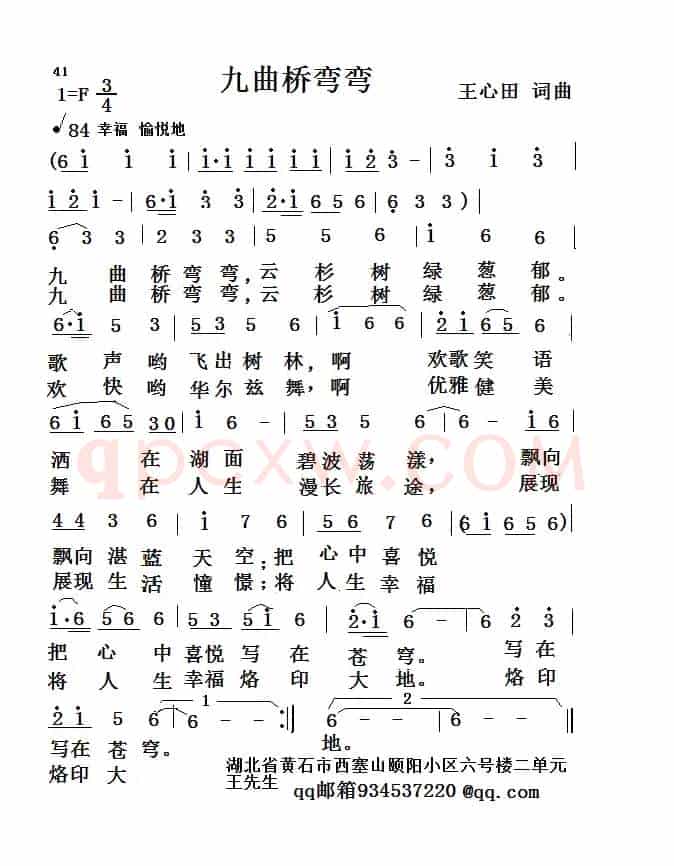 41
九曲桥弯弯
1=F 3/4
王心田 词曲
84 幸福 愉悦地
(6 1 1 1 | 1·1 1 1 1 1 | 1 2 3 - | 3 1 3 |
1 2 1 - | 6·1 3 3 | 2·1 6 5 6 | 6 3 3 ) |
6 3 3 | 2 3 3 | 5 5 6 | 1 6 6 |
九 曲 桥 弯 弯,云 杉 树 绿 葱 郁。
九 曲 桥 弯 弯,云 杉 树 绿 葱 郁。
6·1 5 3 | 5 3 5 6 | 1 6 6 | 2 1 6 5 |
歌 声 哟 飞 出 树 林,啊 欢歌 笑 语
欢 快 哟 华 尔 兹 舞,啊 优雅 健 美
6 1 6 5 3 0 | 1 6 - | 5 3 5 | 6 - 1 6 |
洒 在 湖 面 碧 波 荡 漾, 飘向
舞 在 人 生 漫 长 旅 途, 展现
4 4 3 6 | 1 7 6 | 5 6 7 6 | (6 1 6 5 6) |
飘向 湛 蓝 天 空;把 心 中 喜 悦
展现 生 活 憧 憬;将 人 生 幸 福
1·6 5 6 6 | 5 3 5 1 | 2·1 6 - - | 6 2 3 |
把 心 中 喜悦 写 在 苍 穹。 写在
将 人 生 幸福 烙 印 大 地。 烙印
2 1 5 6 | 6 - - :| 6 - - | 6 - - ||
1 2
写在 苍 穹。 地。
烙印 大
湖北省黄石市西塞山颐阳小区六号楼二单元
王先生
qq邮箱934537220 @qq.com
qpcxw.COM